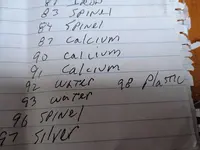 83 Spinel
84 Spinel
87 Calcium
90 Calcium
91 Calcium
92 Water 98 Plastic
93 Water
96 Spinel
97 Silver